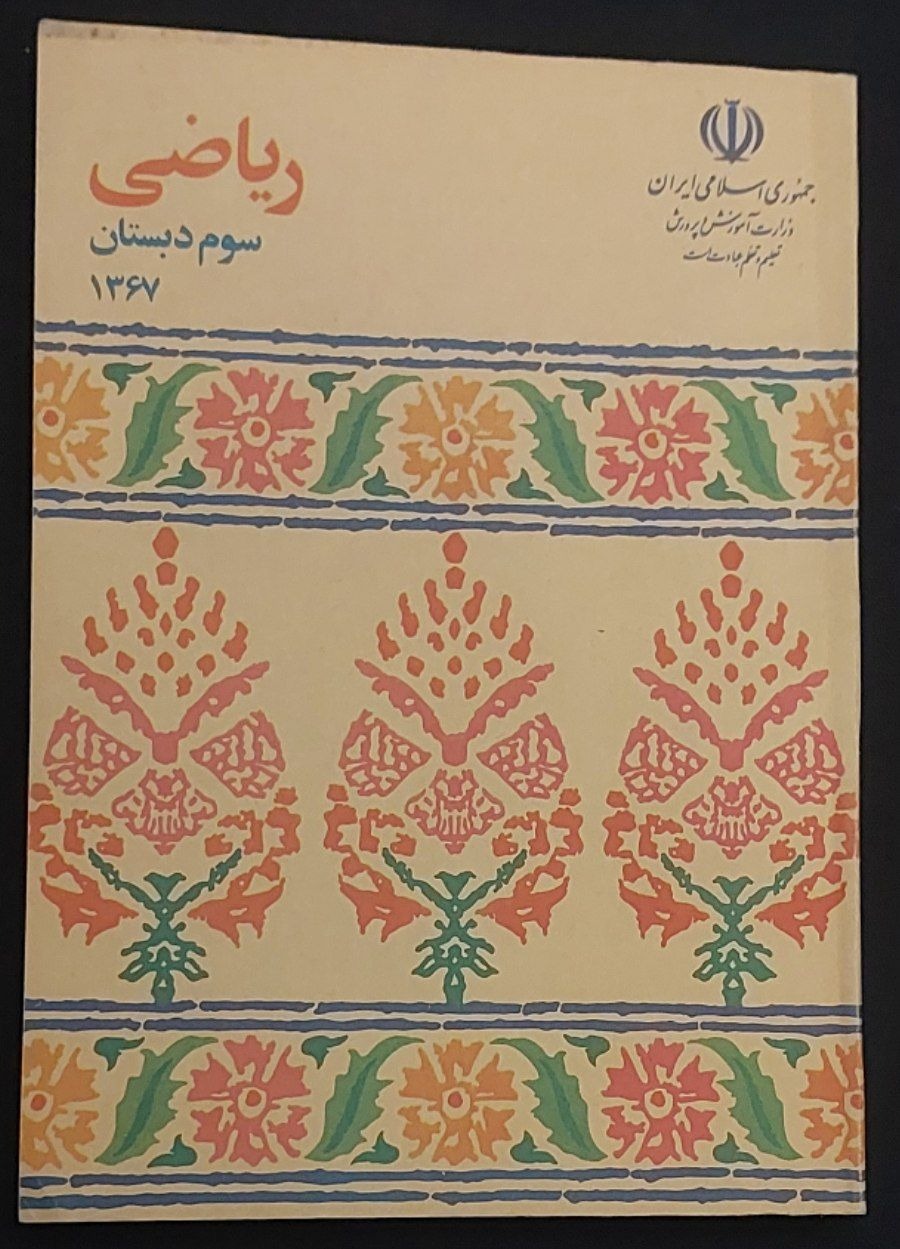 جمهوری اسلامی ایران
وزارت آموزش و پرورش
تعلیم و تعلم عبادت است
ریاضی
سوم دبستان
۱۳۶۷